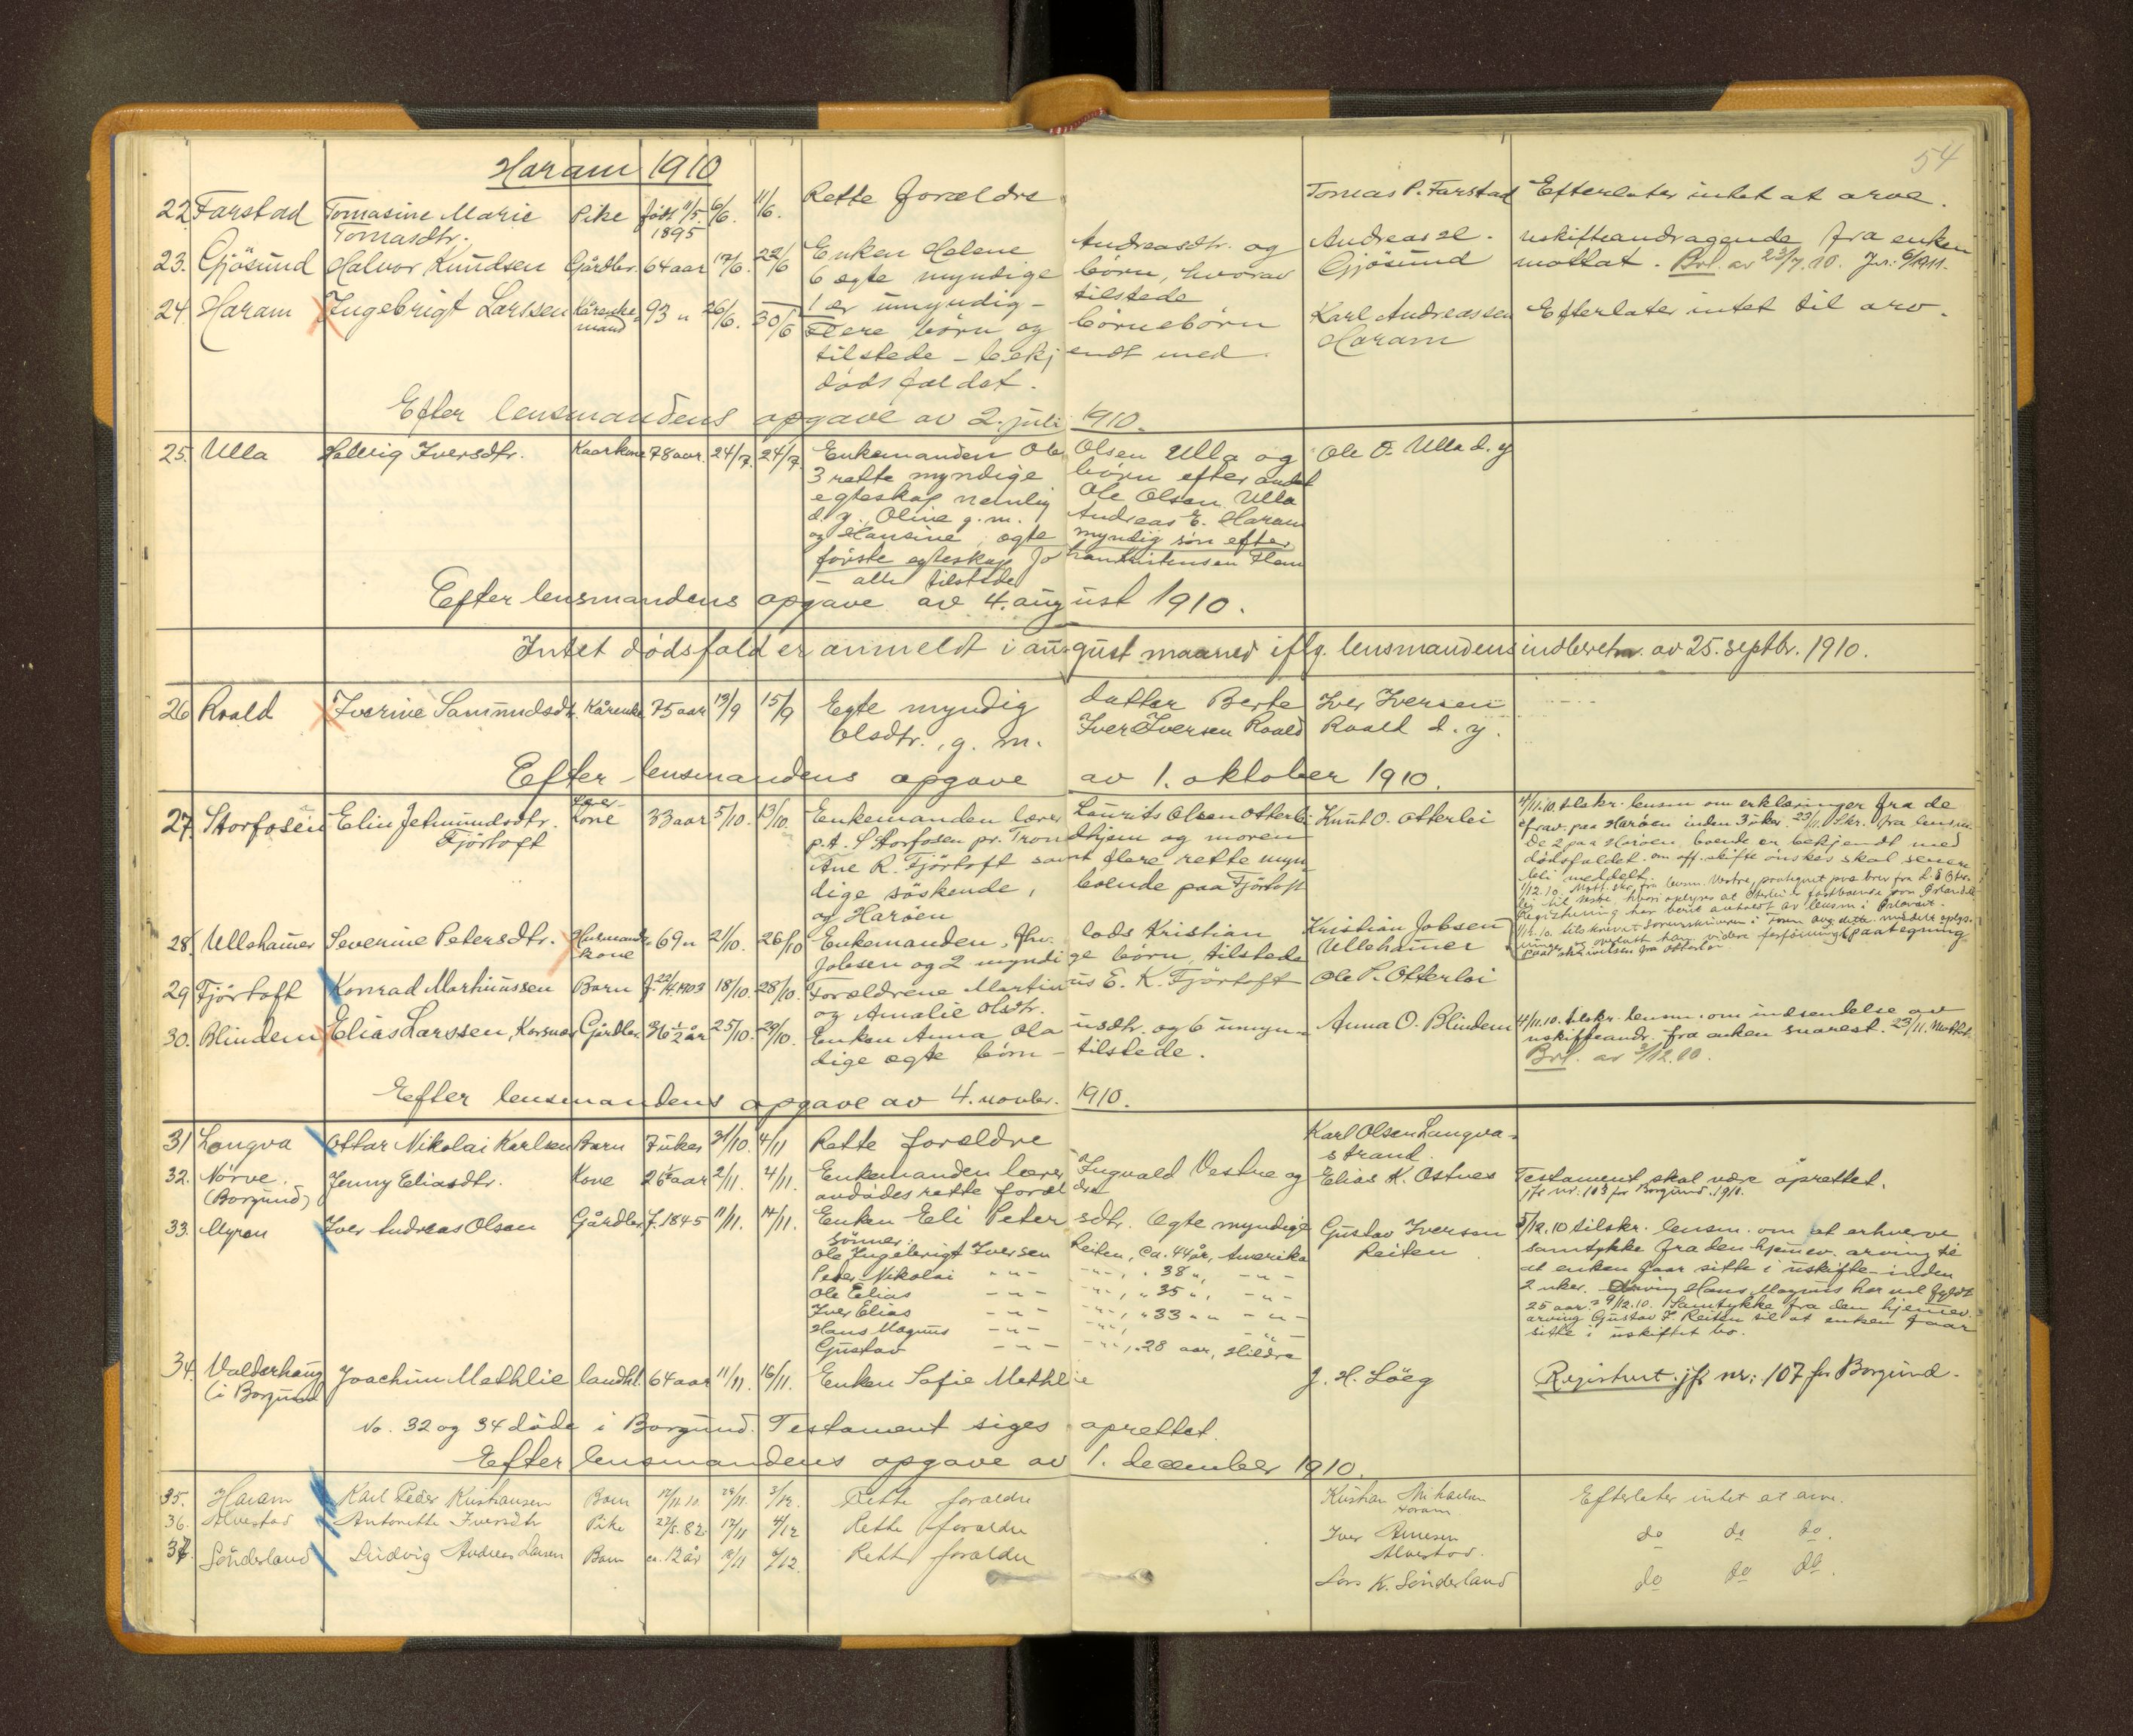 54
Haram 1910
22. Farstad Tomasine Marie Pike född 11/5. 6/6. 11/6. Rette forældre Tomas P. Farstad Efterlater intet at arve.
Tomasdtr. 1895
23. Gjösund Halvor Knudsen Gårdbr. 64 aar 17/6. 22/6 Enken Helene Andreasdtr. og Andreas H. uskifteandragende fra enken
6 egte myndige börn, hvorav Gjösund mottat. Brl. av 23/7.10.
1 er umyndig - tilstede
24. Haram Ingebrigt Larssen Kårenke- 93 " 26/6. 30/6 Flere börn og börnebörn Karl Andreassen Efterlater intet til arv.
mand tilstede - bekjendt med Haram
dödsfaldet.
Efter lensmandens opgave av 2. juli 1910.
25. Ulla Helvig Iversdtr. Kaarkone 78 aar. 24/7. 24/7. Enkemanden Ole Olsen Ulla og Ole O. Ulla d. y
3 rette myndige börn efter andet
egteskap nemlig Ole Olsen Ulla
d. y., Oline g. m. Andreas E. Haram
og Hansine, egte myndig sön efter
förste egteskap Johan Kristensen Flem
- alle tilstede
Efter lensmandens opgave av 4. august 1910.
Intet dödsfald er anmeldt i august maaned iflg. lensmandens indberetn. av 25. septbr. 1910.
26 Roald Iverine Samundsdtr. Kårenke 75 aar 13/9 15/9 Egte myndig datter Berte Iver Iversen
Olsdtr., g. m. Iver Iversen Roald Roald d. y.
Efter lensmandens opgave av 1. oktober 1910.
27. Storfosen Elin Jetmundsdtr. Lærer- 33 aar 5/10. 13/10. Enkemanden lærer Laurits Olsen Otterlei Knut O. Otterlei 4/11.10 tilskr. lensm. om erklæringer fra de
Fjörtoft kone p.t. Storfosen pr. Trondhjem og moren
Ane R. Fjörtoft samt flere rette myn
dige söskende, boende paa Fjörtoft
og Haröen
efrav. paa Haröen inden 3 uker. 23/11. Skr. fra lensm.
De 2 paa Haröen boende er bekjendt med
dödsfaldet. om off. skifte önskes skal senere
bli meddelt.
28. Ullahamer Severine Petersdtr. Husmands- 69 " 21/10. 26/10 Enkemanden, fhv. lods Kristian Kristian Jobsen
kone Jobsen og 2 myndige börn, tilstede Ullahamer
29 Fjörtoft Konrad Marhinussen Barn f. 22/4 1903 18/10. 28/10. Forældrene Martinus E. K. Fjörtoft Ole P. Otterlei
og Amalie Olsdtr.
30. Blindem Elias Larssen, Korsnes Gårdbr. 36 1/2 år 25/10. 29/10. Enken Anna Olausdtr. og 6 umyn- Anna O. Blindem 4/11.10. tilskr. lensm. om indsendelse av
dige egte börn - tilstede. uskifteandr. fra enken snarest. 23/11. Mottat.
Brl. av 2/12.10.
Efter lensmandens opgave av 4. novbr. 1910.
31 Longva Ottar Nikolai Karlsen Barn 7 uker 31/10. 4/11 Rette forældre Karl Olsen Langva-
strand.
32. Nörve Jenny Eliasdtr. Kone 26 aar 2/11. 4/11. Enkemanden lærer Ingvald Vestre og Elias K. Ostnes Testament skal være oprettet.
(Borgund) avdödes rette forældre jfr nr. 103 for Borgund. 1910.
33. Myren Iver Andreas Olsen Gårdbr. f. 1845 11/11. 14/11. Enken Eli Petersdtr. Egte myndige Gustav Iversen 5/12.10 tilskr. lensm. om at erhverve
Sönner: Reiten samtykke fra den hjemev. arving til
Ole Ingebrigt Iversen Reiten, ca. 44 år, Amerika at enken faar sitte i uskifte inden
Peder Nikolai - " - - " -, " 38 ", - " - 2 uker. Arving Hans Magnus har vel fyldt
Ole Elias - " - - " -, " 35 ", - " - 25 aar? 9/12.10. Samtykke fra den hjemev.
Iver Elias - " - - " -, " 33 " " - " - arving Gustav I. Reiten til at enken faar
Hans Magnus - " - - " -, - " - sitte i uskiftet bo.
Gustav - " - - " -, 28 aar, Hildre
34. Valderhaug Joachim Methlie landhl. 64 aar 11/11. 16/11. Enken Sofie Methlie J. H. Löeg Registrert jfr nr: 107 for Borgund.
(i Borgund
No. 32 og 34 döde i Borgund. Testament siges oprettet.
Efter lensmandens opgave av 1. december 1910.
35. Haram Karl Peder Kristiansen Barn 12/11.10. 29/11. 3/12. Rette forældre Kristian Mikaelsen Efterlater intet at arve.
Haram
36. Alvestad Antonette Iversdtr Pike 27/5.82. 17/11 4/12 Rette forældre Iver Arnesen do do do.
Alvestad.
37. Sönderland Ludvig Andreas Larsen Barn ca. 12 år 18/11 6/12. Rette forældre Lars K. Sönderland do do do.